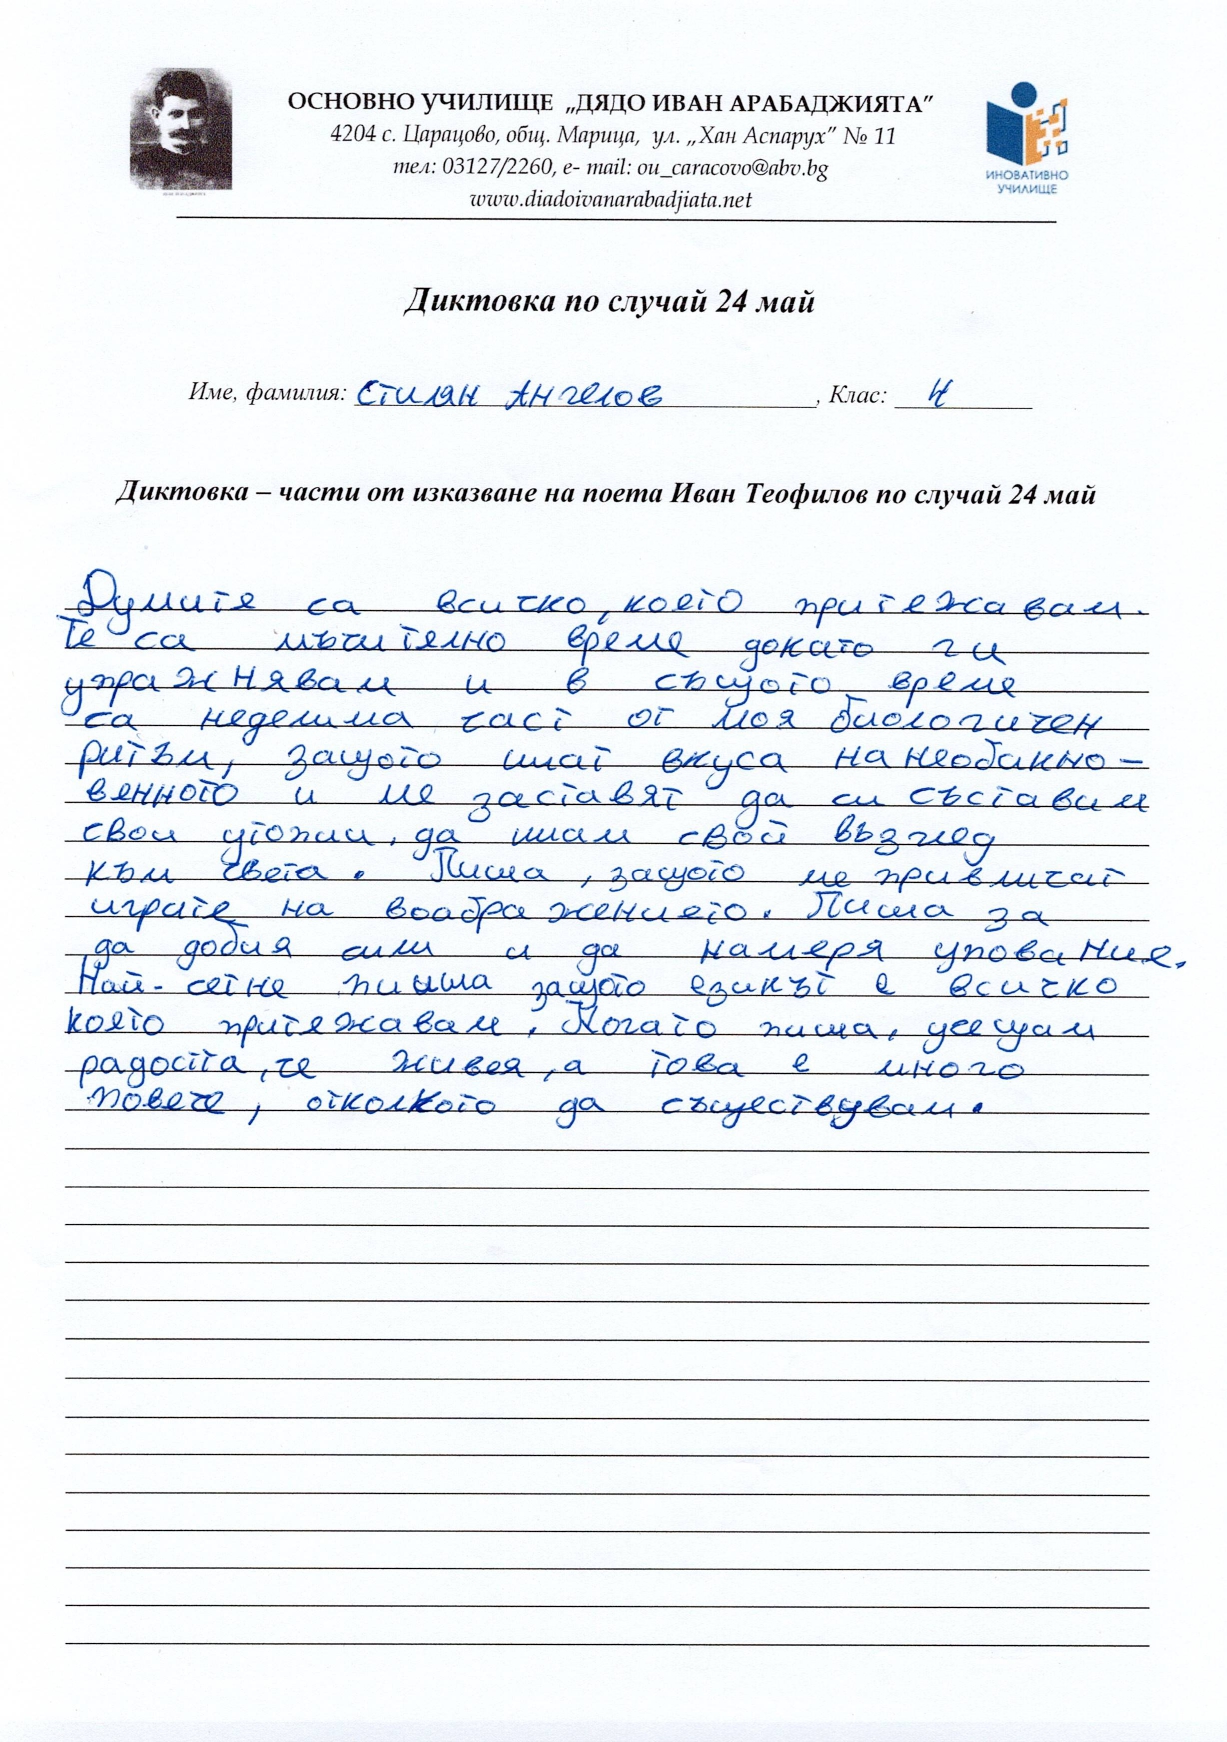 ОСНОВНО УЧИЛИЩЕ „ДЯДО ИВАН АРАБАДЖИЯТА”
4204 с. Царацово, общ. Марица, ул. „Хан Аспарух” № 11
тел: 03127/2260, e- mail: ou_caracovo@abv.bg
www.diadoivanarabadjiata.net
ИНОВАТИВНО
УЧИЛИЩЕ
Диктовка по случай 24 май
Име, фамилия: Стилян Ангелов, Клас: 4
Диктовка – части от изказване на поета Иван Теофилов по случай 24 май
Думите са всичко, което притежавам.
Те са мъчително време докато ги
упражнявам и в същото време
са неделима част от моя биологичен
ритъм, защото имат вкуса на необакно-
венното и ме заставят да си съставим
свои утопии, да имам свой възглед
към света. Пиша, защото ме привличат
играте на воабражението. Пиша за
да добия сили и да намеря упование.
Най-сетне пиша защото езикът е всичко
което притежавам. Когато пиша, усещам
радостта, че живея, а това е много
повече, отколкото да съществувам.